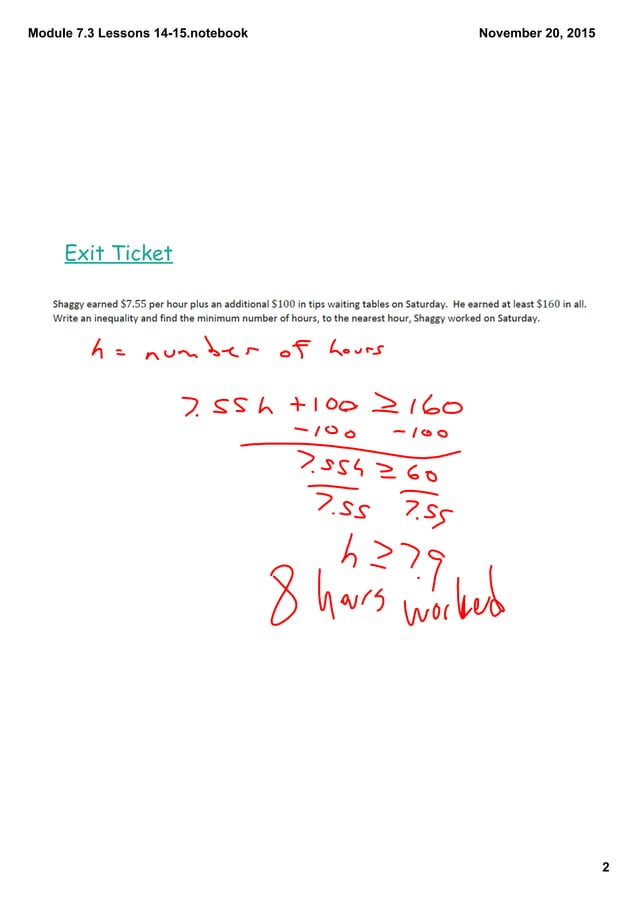 Module 7.3 Lessons 14-15.notebook November 20, 2015
Exit Ticket
Shaggy earned $7.55 per hour plus an additional $100 in tips waiting tables on Saturday. He earned at least $160 in all.
Write an inequality and find the minimum number of hours, to the nearest hour, Shaggy worked on Saturday.
h = number of hours
7.55h + 100 ≥ 160
-100 -100
7.55h ≥ 60
7.55 7.55
h ≥ 7.9
8 hours worked
2